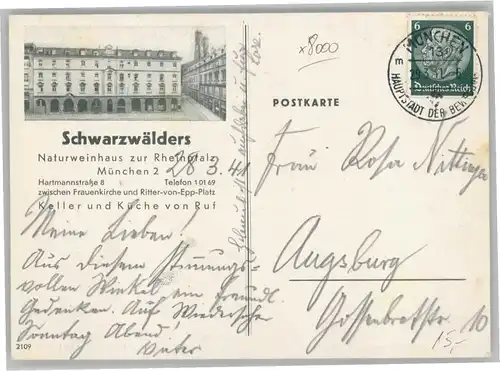 x8000
MÜNCHEN
HAUPTSTADT DER BEWEGUNG
6 6
Deutsches Reich
POSTKARTE
Schwarzwälders
Naturweinhaus zur Rheinpfalz
München 2
Hartmannstraße 8 Telefon 10169
zwischen Frauenkirche und Ritter-von-Epp-Platz
Keller und Küche von Ruf
28 3. 41
Meine Lieben!
Aus diesem stimmungs-
vollen Winkel ein freundl.
Gedenken. Auf Wiedersehen
Sonntag Abend!
2109
Frau Rosa Nittinger
Augsburg
10
15,-